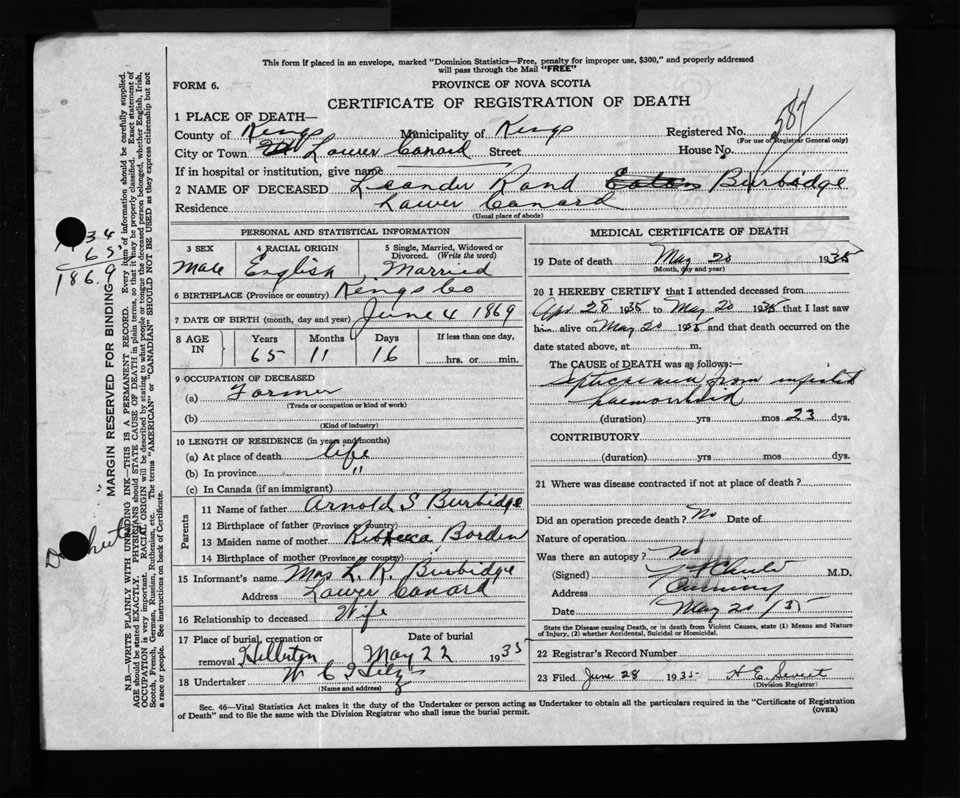 This form if placed in an envelope, marked "Dominion Statistics—Free, penalty for improper use, $300," and properly addressed
will pass through the Mail "FREE"
FORM 6.
PROVINCE OF NOVA SCOTIA
CERTIFICATE OF REGISTRATION OF DEATH
1 PLACE OF DEATH—
County of Kings Municipality of Kings Registered No. 587
(For use of Registrar General only)
City or Town Lower Canard Street House No.
If in hospital or institution, give name
2 NAME OF DECEASED Leander Rand Eaton Burbidge
Residence Lower Canard
(Usual place of abode)
PERSONAL AND STATISTICAL INFORMATION
3 SEX 4 RACIAL ORIGIN 5 Single, Married, Widowed or
Divorced. (Write the word)
Male English Married
6 BIRTHPLACE (Province or country) Kings Co
7 DATE OF BIRTH (month, day and year) June 4 1869
8 AGE IN Years Months Days If less than one day,
65 11 16 hrs. or min.
9 OCCUPATION OF DECEASED
(a) Farmer
(Trade or occupation or kind of work)
(b)
(Kind of industry)
10 LENGTH OF RESIDENCE (in years and months)
(a) At place of death life
(b) In province "
(c) In Canada (if an immigrant)
Parents
11 Name of father Arnold S Burbidge
12 Birthplace of father (Province or country)
13 Maiden name of mother Rebecca Borden
14 Birthplace of mother (Province or country)
15 Informant's name Mrs L. R. Burbidge
Address Lower Canard
16 Relationship to deceased Wife
17 Place of burial, cremation or Date of burial
removal May 22 1935
18 Undertaker W C
(Name and address)
MEDICAL CERTIFICATE OF DEATH
19 Date of death May 20 1935
(Month, day and year)
20 I HEREBY CERTIFY that I attended deceased from
Apr 28 1935 to May 20 1935 that I last saw
him alive on May 20 1935 and that death occurred on the
date stated above, at m.
The CAUSE of DEATH was as follows:
Septicaemia from infected
haemorrhoid
(duration) yrs mos 23 dys.
CONTRIBUTORY
(duration) yrs mos dys.
21 Where was disease contracted if not at place of death?
Did an operation precede death? No Date of
Nature of operation
Was there an autopsy? no
(Signed) M.D.
Address Canning
Date May 20/35
State the Disease causing Death, or in death from Violent Causes, state (1) Means and Nature
of Injury, (2) whether Accidental, Suicidal or Homicidal.
22 Registrar's Record Number
23 Filed June 28 1935 H E
(Division Registrar)
Sec. 46—Vital Statistics Act makes it the duty of the Undertaker or person acting as Undertaker to obtain all the particulars required in the "Certificate of Registration
of Death" and to file the same with the Division Registrar who shall issue the burial permit.
(OVER)
MARGIN RESERVED FOR BINDING
N.B.—WRITE PLAINLY WITH UNFADING INK—THIS IS A PERMANENT RECORD. Every item of information should be carefully supplied.
AGE should be stated EXACTLY. PHYSICIANS should STATE CAUSE OF DEATH in plain terms, so that it may be properly classified. Exact statement of
OCCUPATION is very important. RACIAL ORIGIN will be described by stating to what people or tongue the deceased person belonged, whether English, Irish,
Scotch, French, German, Russian, Ruthenian, etc. The terms "AMERICAN" or "CANADIAN" SHOULD NOT BE USED as they express citizenship but not
a race or people. See instructions on back of Certificate.
34
65
1869